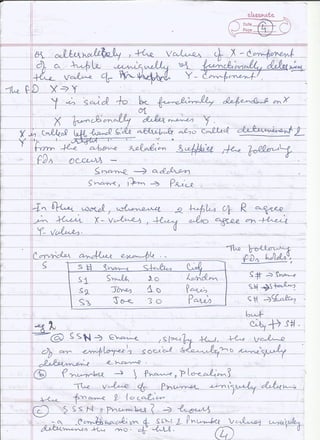 classmate
Date
Page
or alternatively, the values of X-component
of a tuple uniquely or functionally determine
the value of Y-component.
The FD X → Y
Y is said to be functionally dependent on X
or
X functionally determines Y.
X is called left hand side attribute also called determinant &
Y
from the above relation Supplies the following
FDs occurs -
Sname → address
Sname, item → Price
In other word, whenever 2 tuples of R agree
in their X-values, they also agree on their
Y-values.
Consider another example.
The following
FDs holds,
S
S# Sname Status City
S1 Smith 20 London
S2 Jones 10 Paris
S3 Joe 30 Paris
S# → Sname
S# → Status
S# → 
but
City ↛ S#.
eg 2
(a) SSN → Ename, specify that the value
of an employee's social security no uniquely
determine ename.
(b) Pnumber → { Pname, Plocation}
The value of Pnumber uniquely determine
the pname & location
(c) {SSN, Pnumber} → hours
a combination of SSN & Pnumber values uniquely
determines the no. of hrs.
4